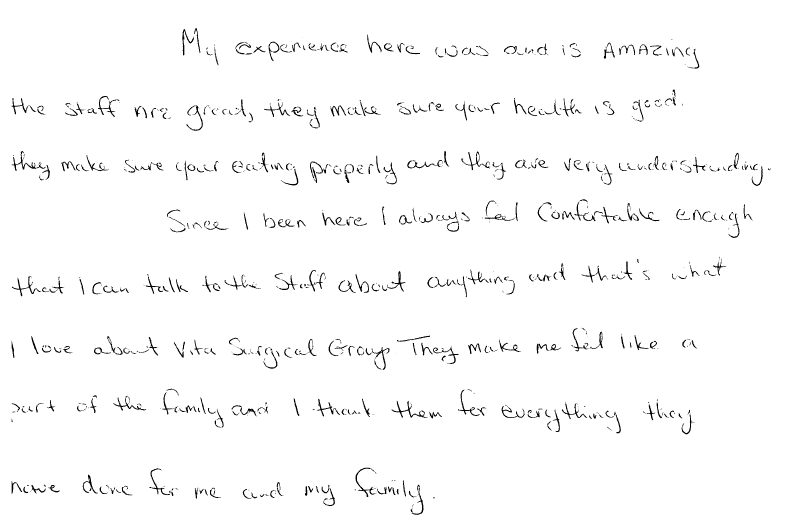 My experience here was and is AMAZing
the staff are great, they make sure your health is good.
they make sure your eating properly and they are very understanding.
Since I been here I always feel Comfortable enough
that I can talk to the Staff about anything and that's what
I love about Vita Surgical Group They make me feel like a
part of the family and I thank them for everything they
have done for me and my family.